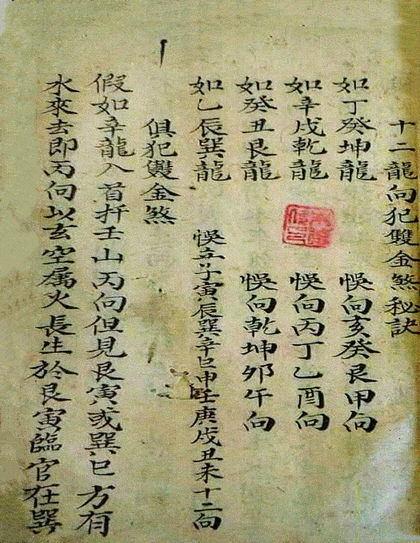 十二龍向犯雙金煞秘訣
如丁癸坤龍 悞向亥癸艮甲向
如辛戌乾龍 悞向丙丁乙酉向
如癸丑艮龍 悞向乾坤卯午向
如乙辰巽龍 悞立子寅辰巽辛巳申壬庚戌丑未十二向
俱犯雙金煞
假如辛龍入首扦壬山丙向但見艮寅或巽巳方有
水來去即丙向以玄空属火長生於艮寅臨官在巽